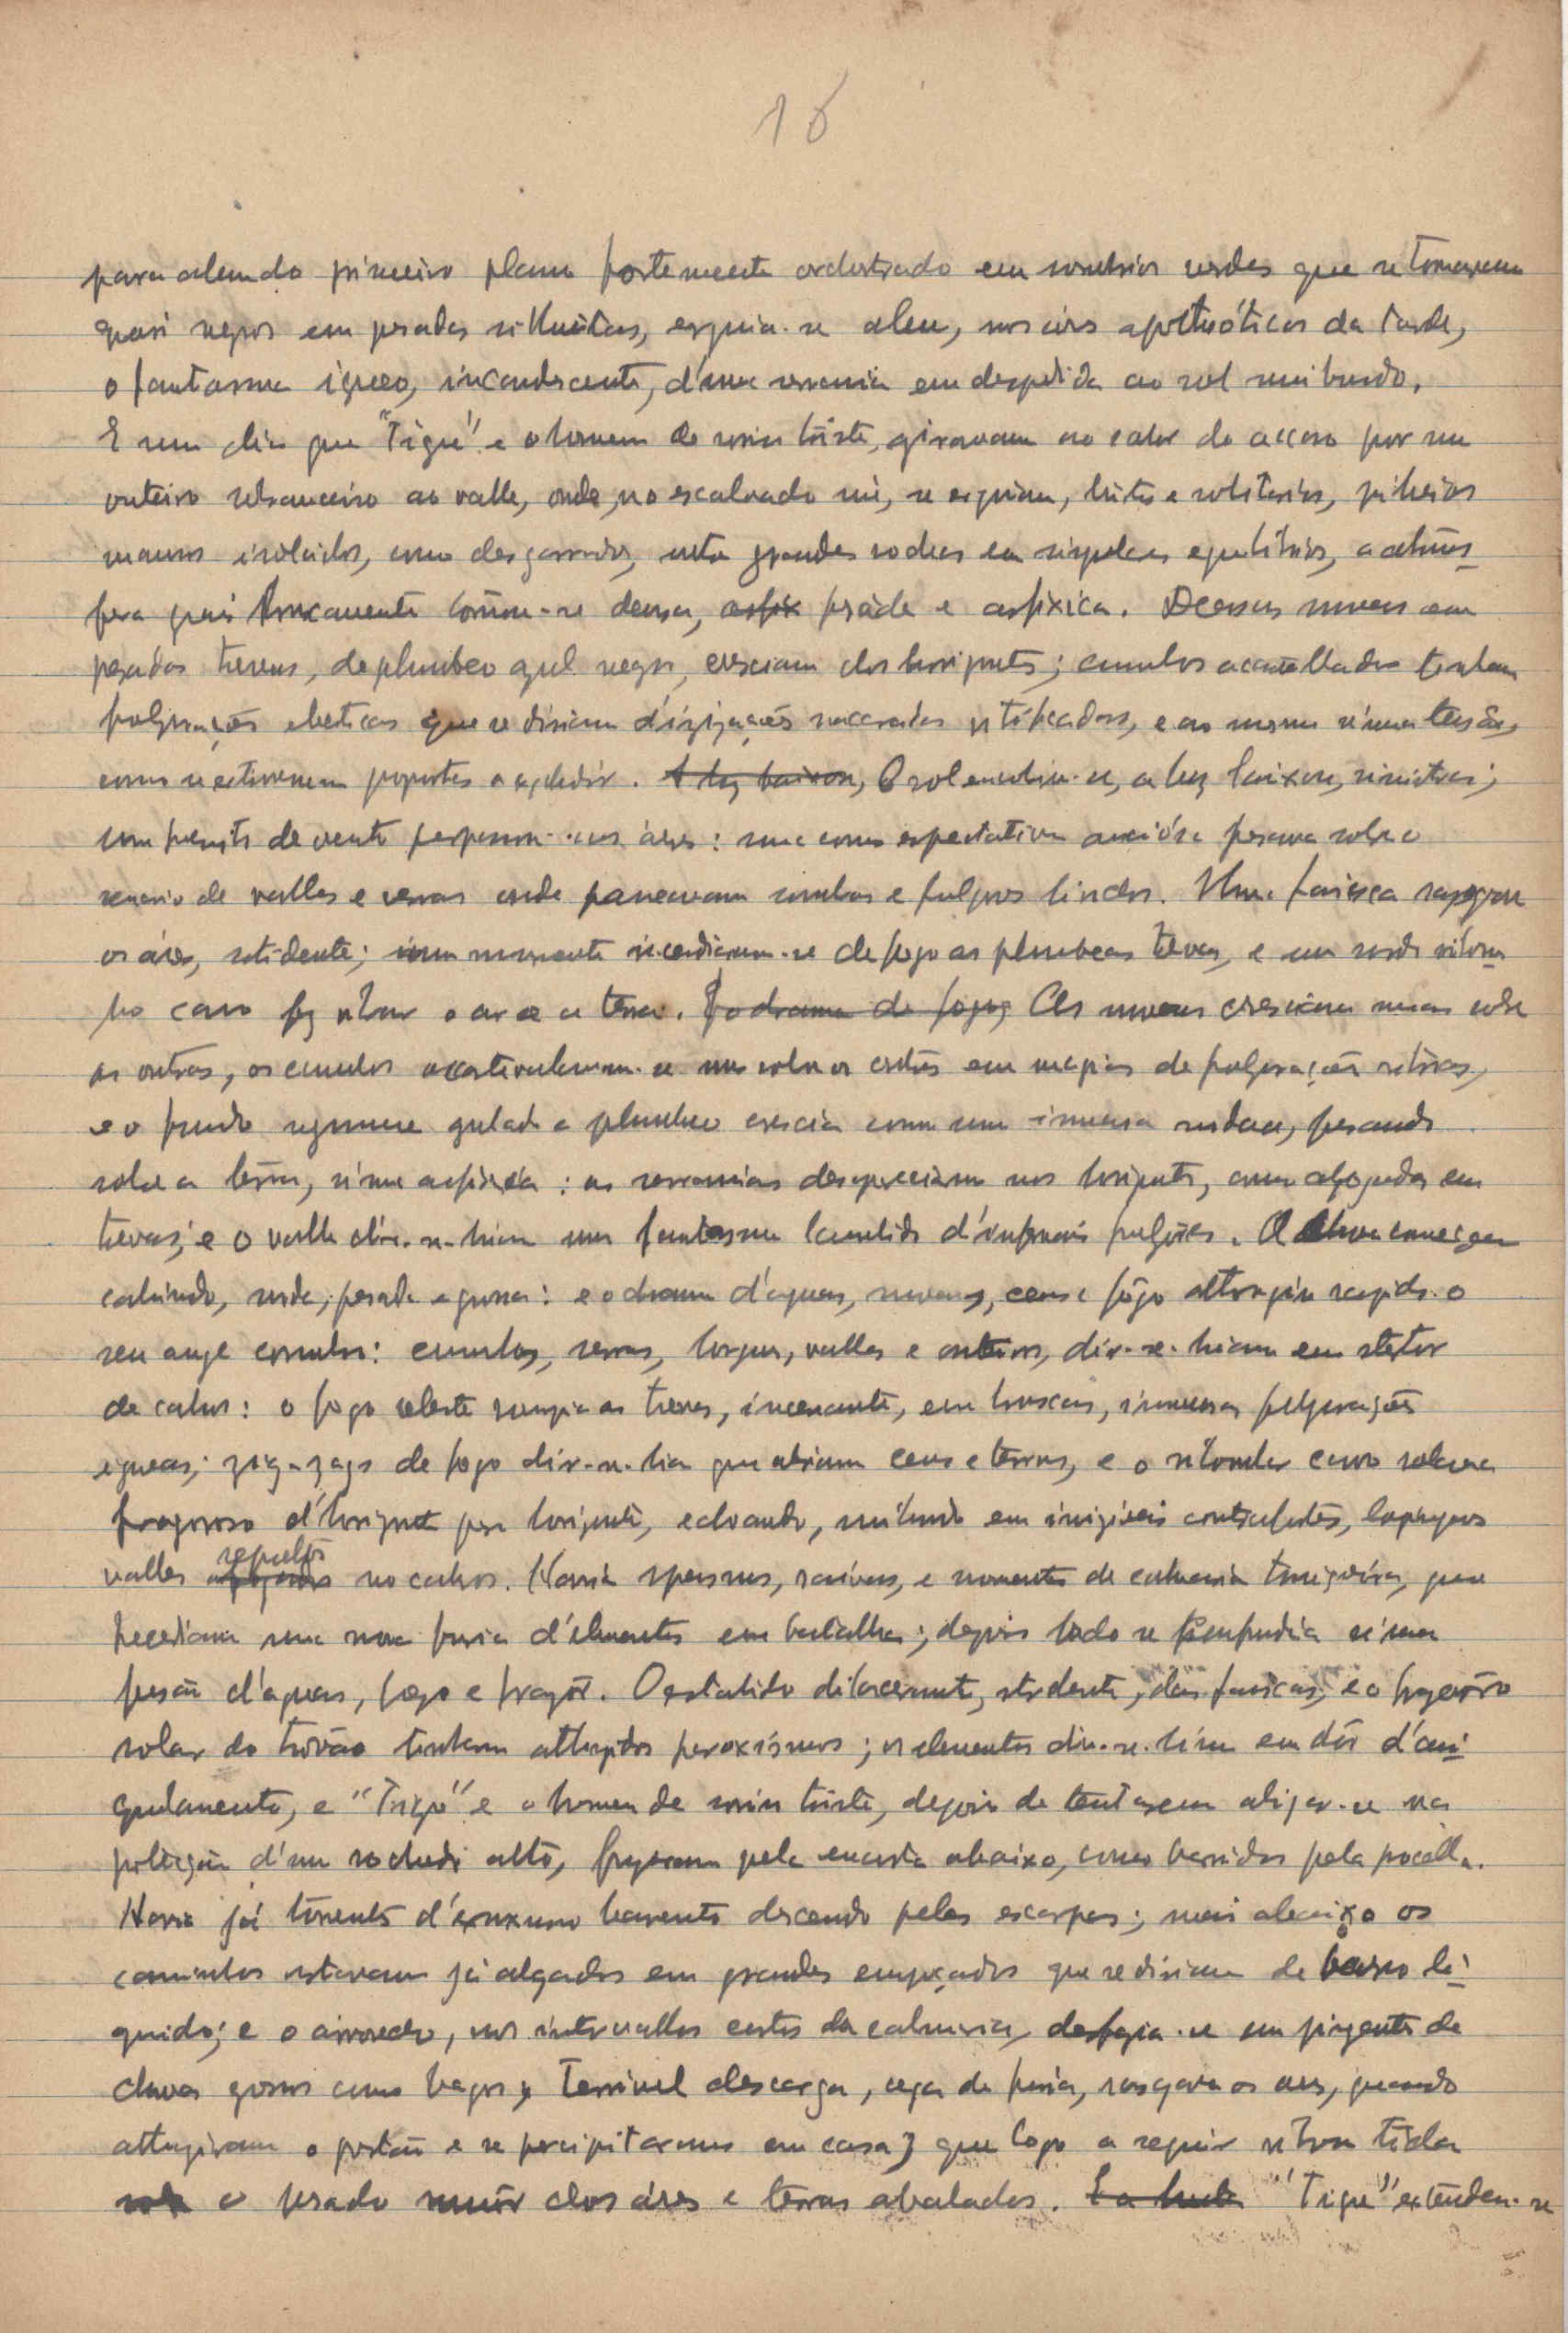 16
para alem do primeiro plano fortemente orchestrado em sombrios verdes que se tornavam
quasi negros em pesadas silhuetas, erguia-se alem, nos céus apotheóticos da tarde,
o fantasma igneo, incandescente, d'uma serrania em despedida ao sol moribundo.
E um dia que "Tigre" e o homem de sorriso triste, giravam ao calor do acaso por um
outeiro sobranceiro ao valle, onde, no escalvado nú, se erguiam, tristes e solitarios, pinheiros
mansos isolados, como desgarrados, entre grandes rochas em singulares equilibrios, a atmos-
fera quasi bruscamente tornou-se densa, asfix pesada e asfixica. Densas nuvens em
pesadas trevas, de plumbeo azul negro, cresciam dos horizontes; cumulos acastellados tinham
fulgurações electricas que se diriam d'irizações nacaradas petrificadas, e ao mesmo n'uma tensão,
como se estivessem promptos a explodir. A luz baixou, O sol encobriu-se, a luz baixou, sinistra;
um fremito de vento perpassou nos áres: uma como expectativa anciósa pesava sobre o
scenario de valles e serras onde pairavam sombras e fulgores lindos. Uma faisca rasgou
os áres, estridente; n'um momento incendiaram-se de fogo as plumbeas trevas, e um surdo ribom-
bo cavo fez reboar o ar e a terra. E o drama de fogo As nuvens cresciam umas sobre
as outras, os cumulos acastellavam-se uns sobre os outros em magias de fulgurações
e o fundo gelado e plumbeo crescia como um immenso sudario, pesando
sobre a terra, n'uma asfixia: as serranias desapareciam nos horizontes, como afogadas em
trevas; e o valle dir-se-hia um fantasma lambido d'infernais fulgores. A chuva começou
cahindo, surda, pesada e grossa: e o drama d'aguas, nuvens, ceus e fôgo attingiu rapido o
seu auge: cumulos, serras, valles e outeiros, dir-se-hiam em stertor
de cahos: o fogo celeste rompia as trevas, incessante, em bruscas, immensas fulgurações
igneas; zig-zags de fogo dir-se-hia que abriam ceus e terras, e o ribombar cavo rolava
fragoroso d'horizonte para horizonte, echoando, em invisiveis contrafortes, longiquos
valles afogados sepultos no cahos. Havia spasmos, raivas, e momentos de calmaria traiçoeira, que
precediam uma nova furia d'elementos em batalha; depois tudo se confundia n'uma
fusão d'aguas, fogo e fragôr. O estalido dilacerante, stridente, das faiscas, e o fragoroso
rolar do trovão tinham attingido paroxismos; os elementos dir-se-hiam em dôr d'ani-
quilamento, e "Tigre" e o homem de sorriso triste, depois de tentarem abrigar-se na
protecção d'um rochedo alto, fugiram pela encosta abaixo, como varridos pela procella.
Havia já torrentes d'enxurro barrento descendo pelas escarpas; mais abaixo os
caminhos estavam já alagados em grandes empoçados que se diriam de barro li-
quido; e o arvoredo, nos intervallos curtos da calmaria, desfazia-se em pingentes de
chuva grossos como bagos; Terrivel descarga, cega de furia, rasgava os ares, quando
attingiram o portão e se percipitaram em casa; que logo a seguir
sob o pesado dos áres e terras abalados. E a chuva "Tigre" extendeu-se